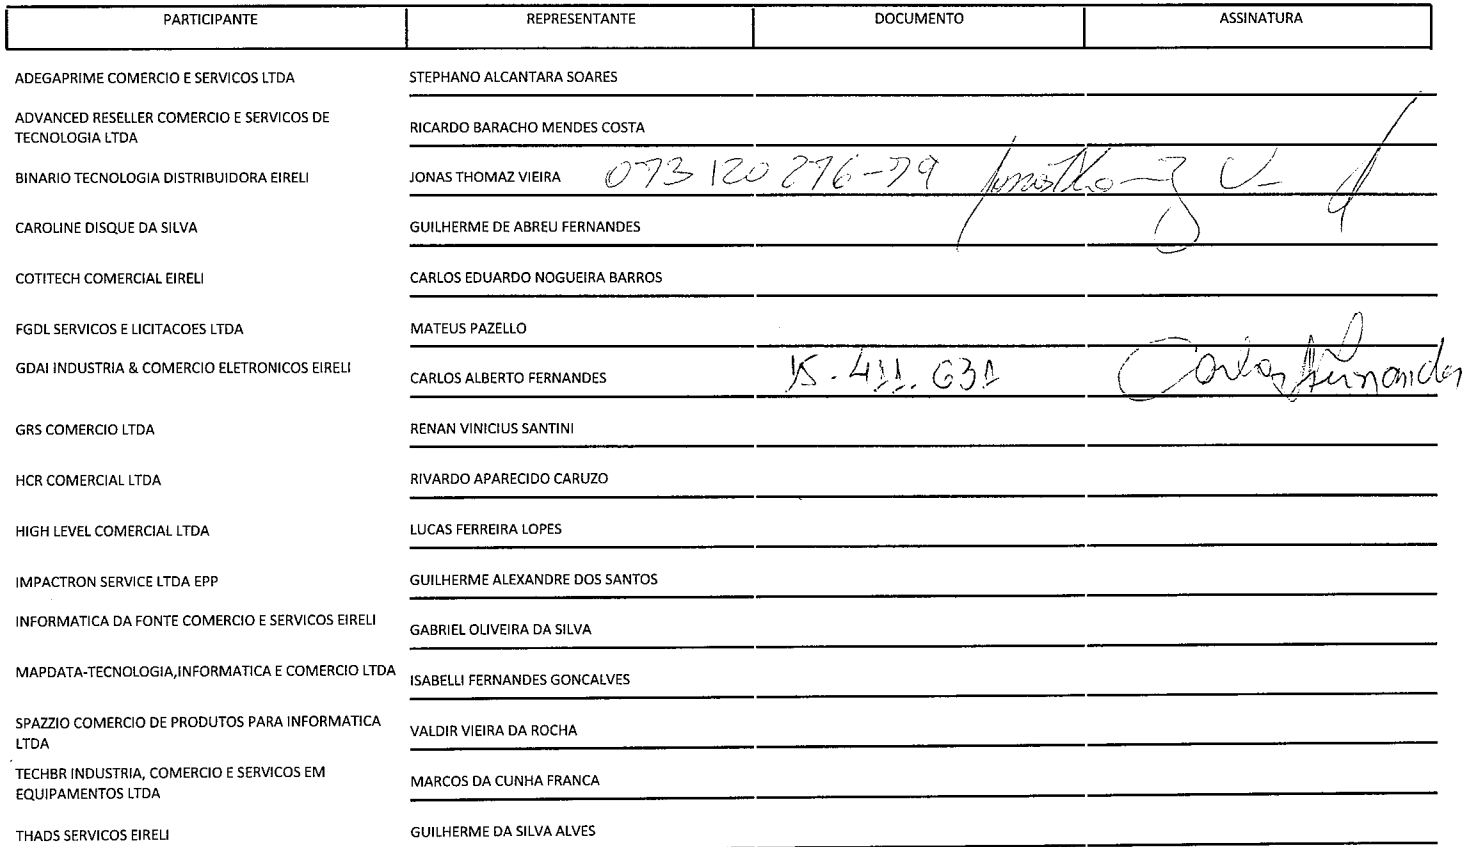 PARTICIPANTE REPRESENTANTE DOCUMENTO ASSINATURA
ADEGAPRIME COMERCIO E SERVICOS LTDA STEPHANO ALCANTARA SOARES
ADVANCED RESELLER COMERCIO E SERVICOS DE
TECNOLOGIA LTDA RICARDO BARACHO MENDES COSTA
BINARIO TECNOLOGIA DISTRIBUIDORA EIRELI JONAS THOMAZ VIEIRA 073 120 276-79
CAROLINE DISQUE DA SILVA GUILHERME DE ABREU FERNANDES
COTITECH COMERCIAL EIRELI CARLOS EDUARDO NOGUEIRA BARROS
FGDL SERVICOS E LICITACOES LTDA MATEUS PAZELLO
GDAI INDUSTRIA & COMERCIO ELETRONICOS EIRELI CARLOS ALBERTO FERNANDES 15.411.631 Carlos A Fernandes
GRS COMERCIO LTDA RENAN VINICIUS SANTINI
HCR COMERCIAL LTDA RIVARDO APARECIDO CARUZO
HIGH LEVEL COMERCIAL LTDA LUCAS FERREIRA LOPES
IMPACTRON SERVICE LTDA EPP GUILHERME ALEXANDRE DOS SANTOS
INFORMATICA DA FONTE COMERCIO E SERVICOS EIRELI GABRIEL OLIVEIRA DA SILVA
MAPDATA-TECNOLOGIA,INFORMATICA E COMERCIO LTDA ISABELLI FERNANDES GONCALVES
SPAZZIO COMERCIO DE PRODUTOS PARA INFORMATICA
LTDA VALDIR VIEIRA DA ROCHA
TECHBR INDUSTRIA, COMERCIO E SERVICOS EM
EQUIPAMENTOS LTDA MARCOS DA CUNHA FRANCA
THADS SERVICOS EIRELI GUILHERME DA SILVA ALVES